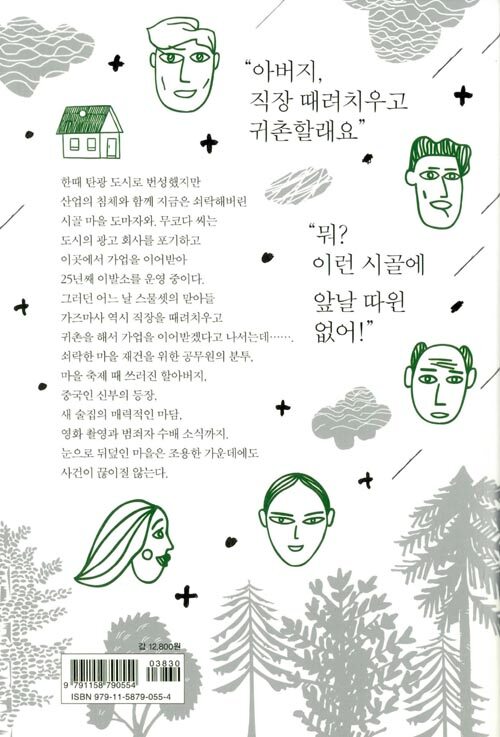 “아버지,
직장 때려치우고
귀촌할래요”
한때 탄광 도시로 번성했지만
산업의 침체와 함께 지금은 쇠락해버린
시골 마을 도마자와. 무코다 씨는
도시의 광고 회사를 포기하고
이곳에서 가업을 이어받아
25년째 이발소를 운영 중이다.
그러던 어느 날 스물셋의 맏아들
가즈마사 역시 직장을 때려치우고
귀촌을 해서 가업을 이어받겠다고 나서는데…….
쇠락한 마을 재건을 위한 공무원의 분투,
마을 축제 때 쓰러진 할아버지,
중국인 신부의 등장,
새 술집의 매력적인 마담,
영화 촬영과 범죄자 수배 소식까지.
눈으로 뒤덮인 마을은 조용한 가운데에도
사건이 끊이질 않는다.
“뭐?
이런 시골에
앞날 따윈
없어!”
값 12,800원
03830
9 791158 790554
ISBN 979-11-5879-055-4